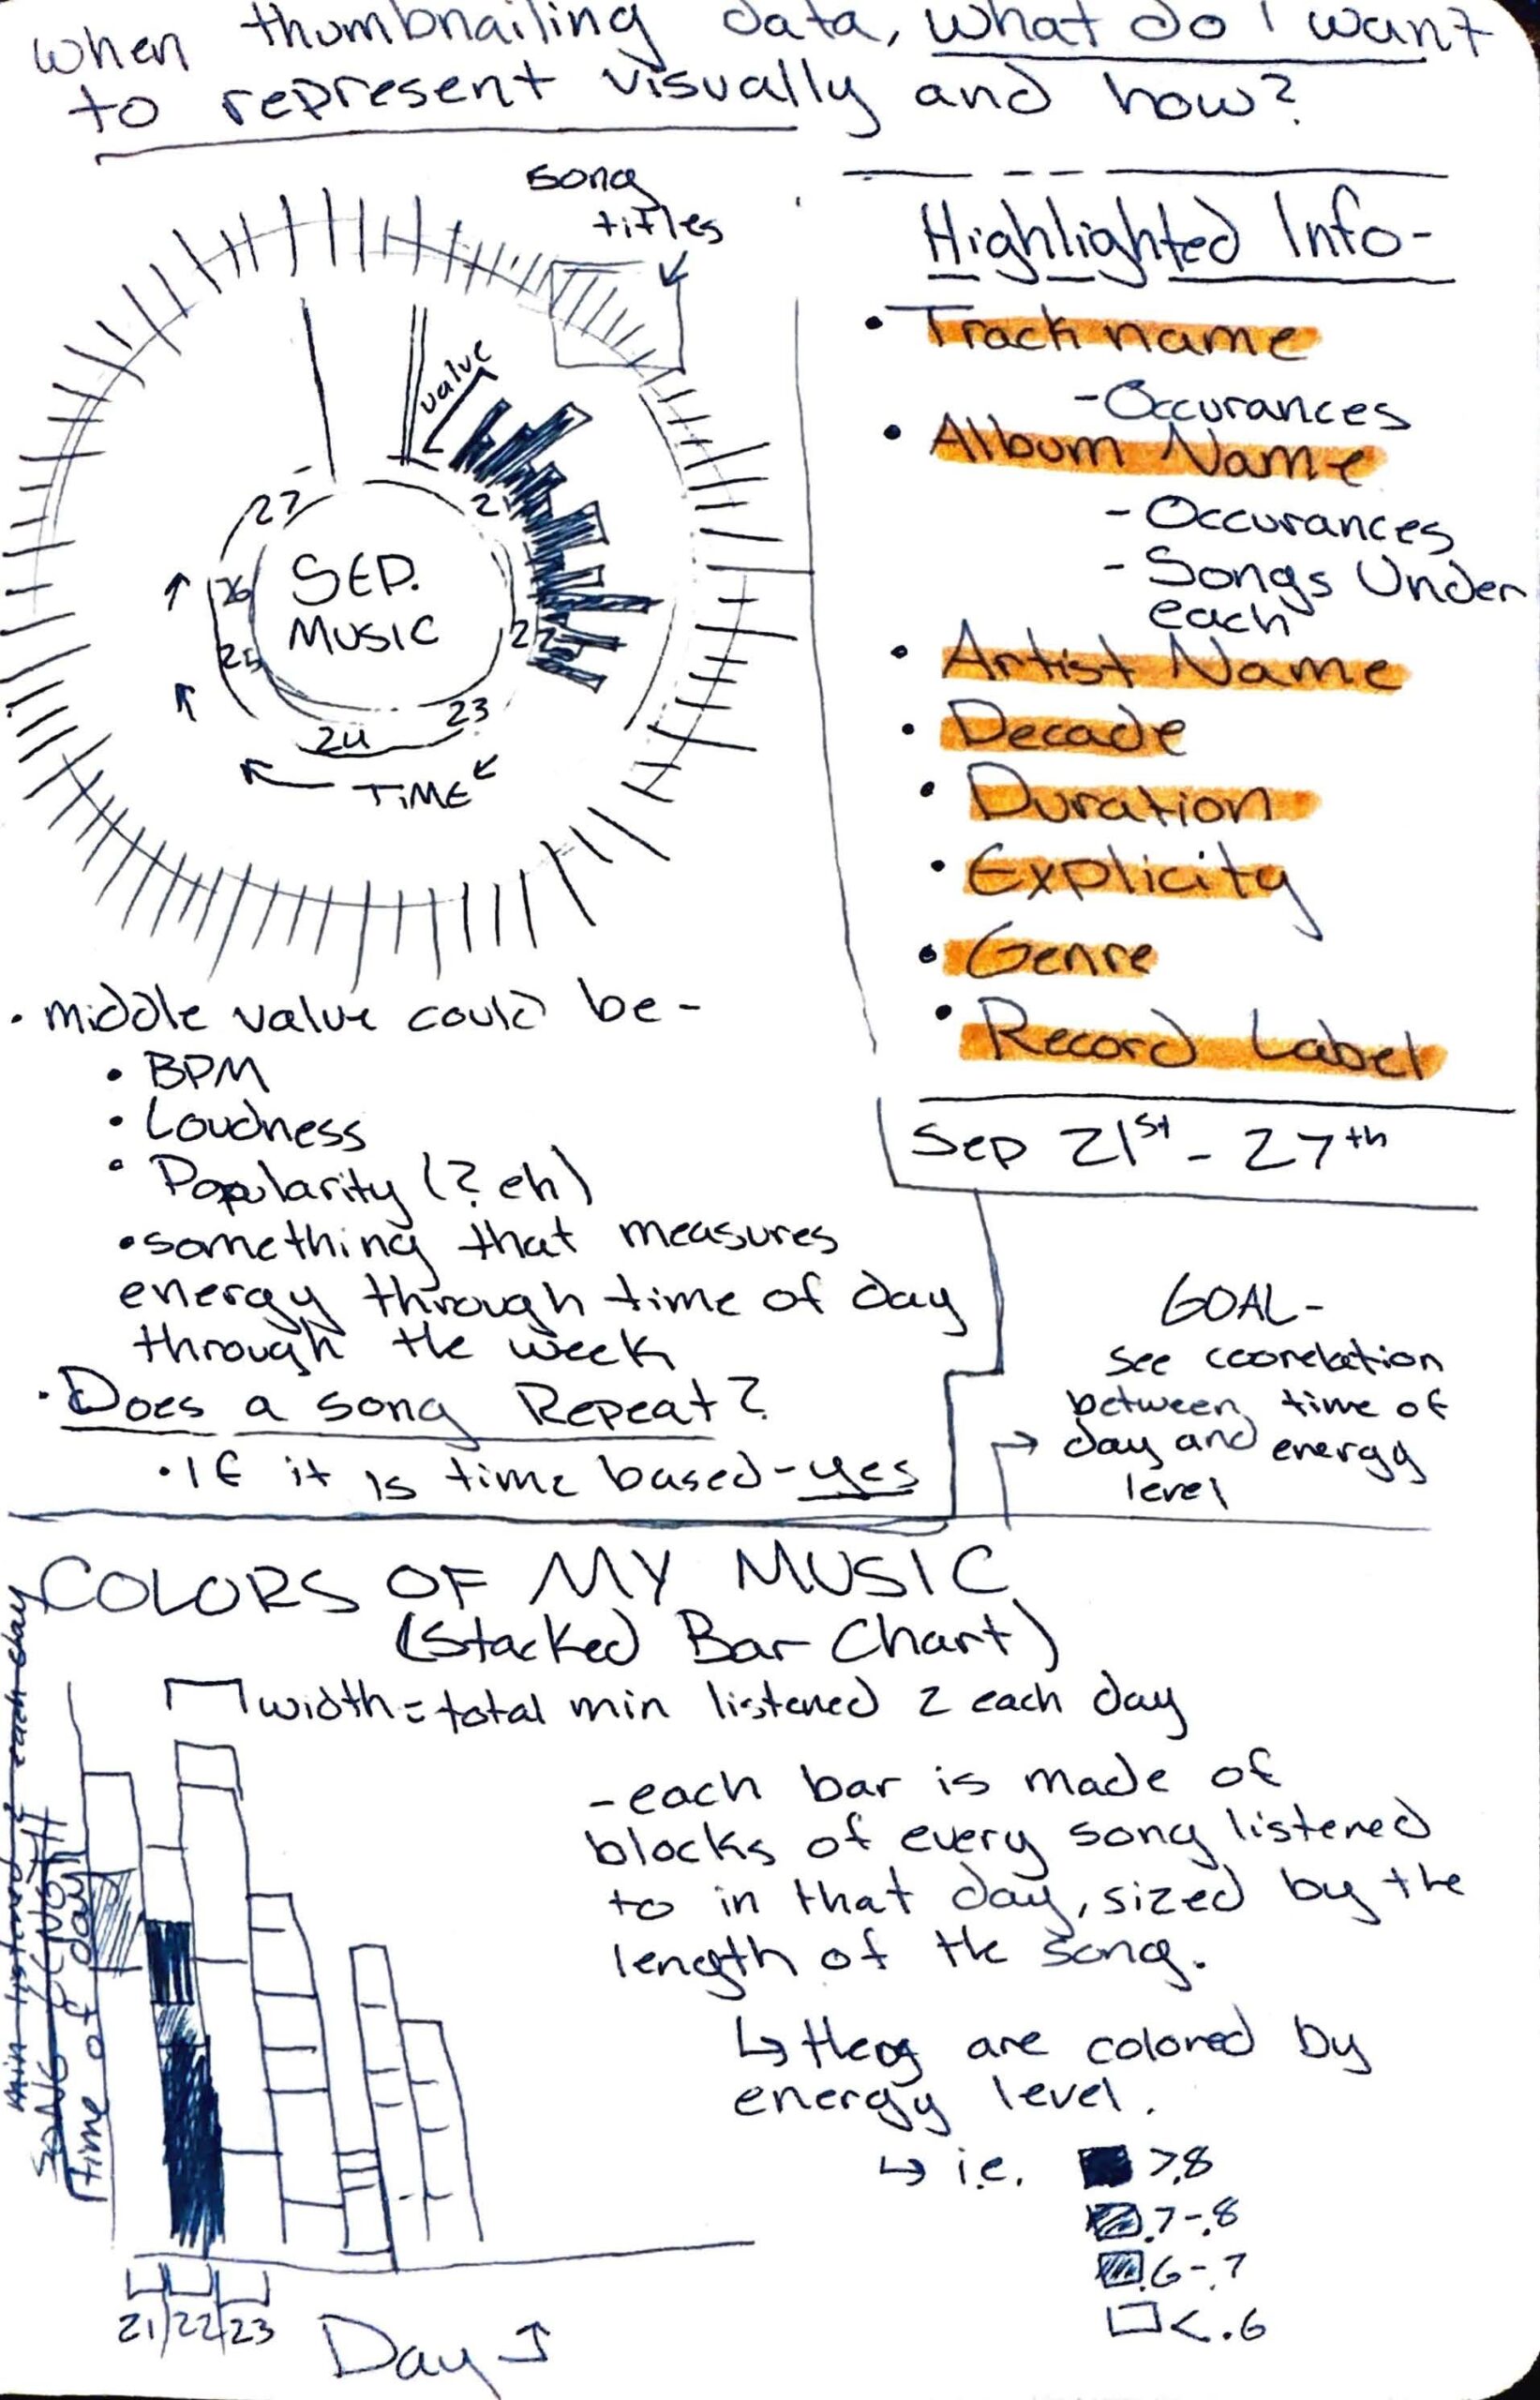 when thumbnailing data, what do I want
to represent visually and how?
song
titles
value
21
22
23
24
25
26
27
SEP.
MUSIC
TIME
Highlighted Info-
• Track name
-Occurances
• Album Name
- Occurances
- Songs Under
each
• Artist Name
• Decade
• Duration
• Explicity
• Genre
• Record Label
Sep 21st - 27th
• middle value could be-
• BPM
• Loudness
• Popularity (? eh)
• something that measures
energy through time of day
through the week
• Does a song Repeat?
• If it is time based-yes
GOAL-
see coorelation
between time of
day and energy
level
COLORS OF MY MUSIC
(Stacked Bar Chart)
width = total min listened 2 each day
min listened 2 each day
SONG LENGTH
(time of day)
-each bar is made of
blocks of every song listened
to in that day, sized by the
length of the song.
↳ are colored by
energy level.
↳ i.e. >.8
.7-.8
.6-.7
<.6
21 22 23
Day